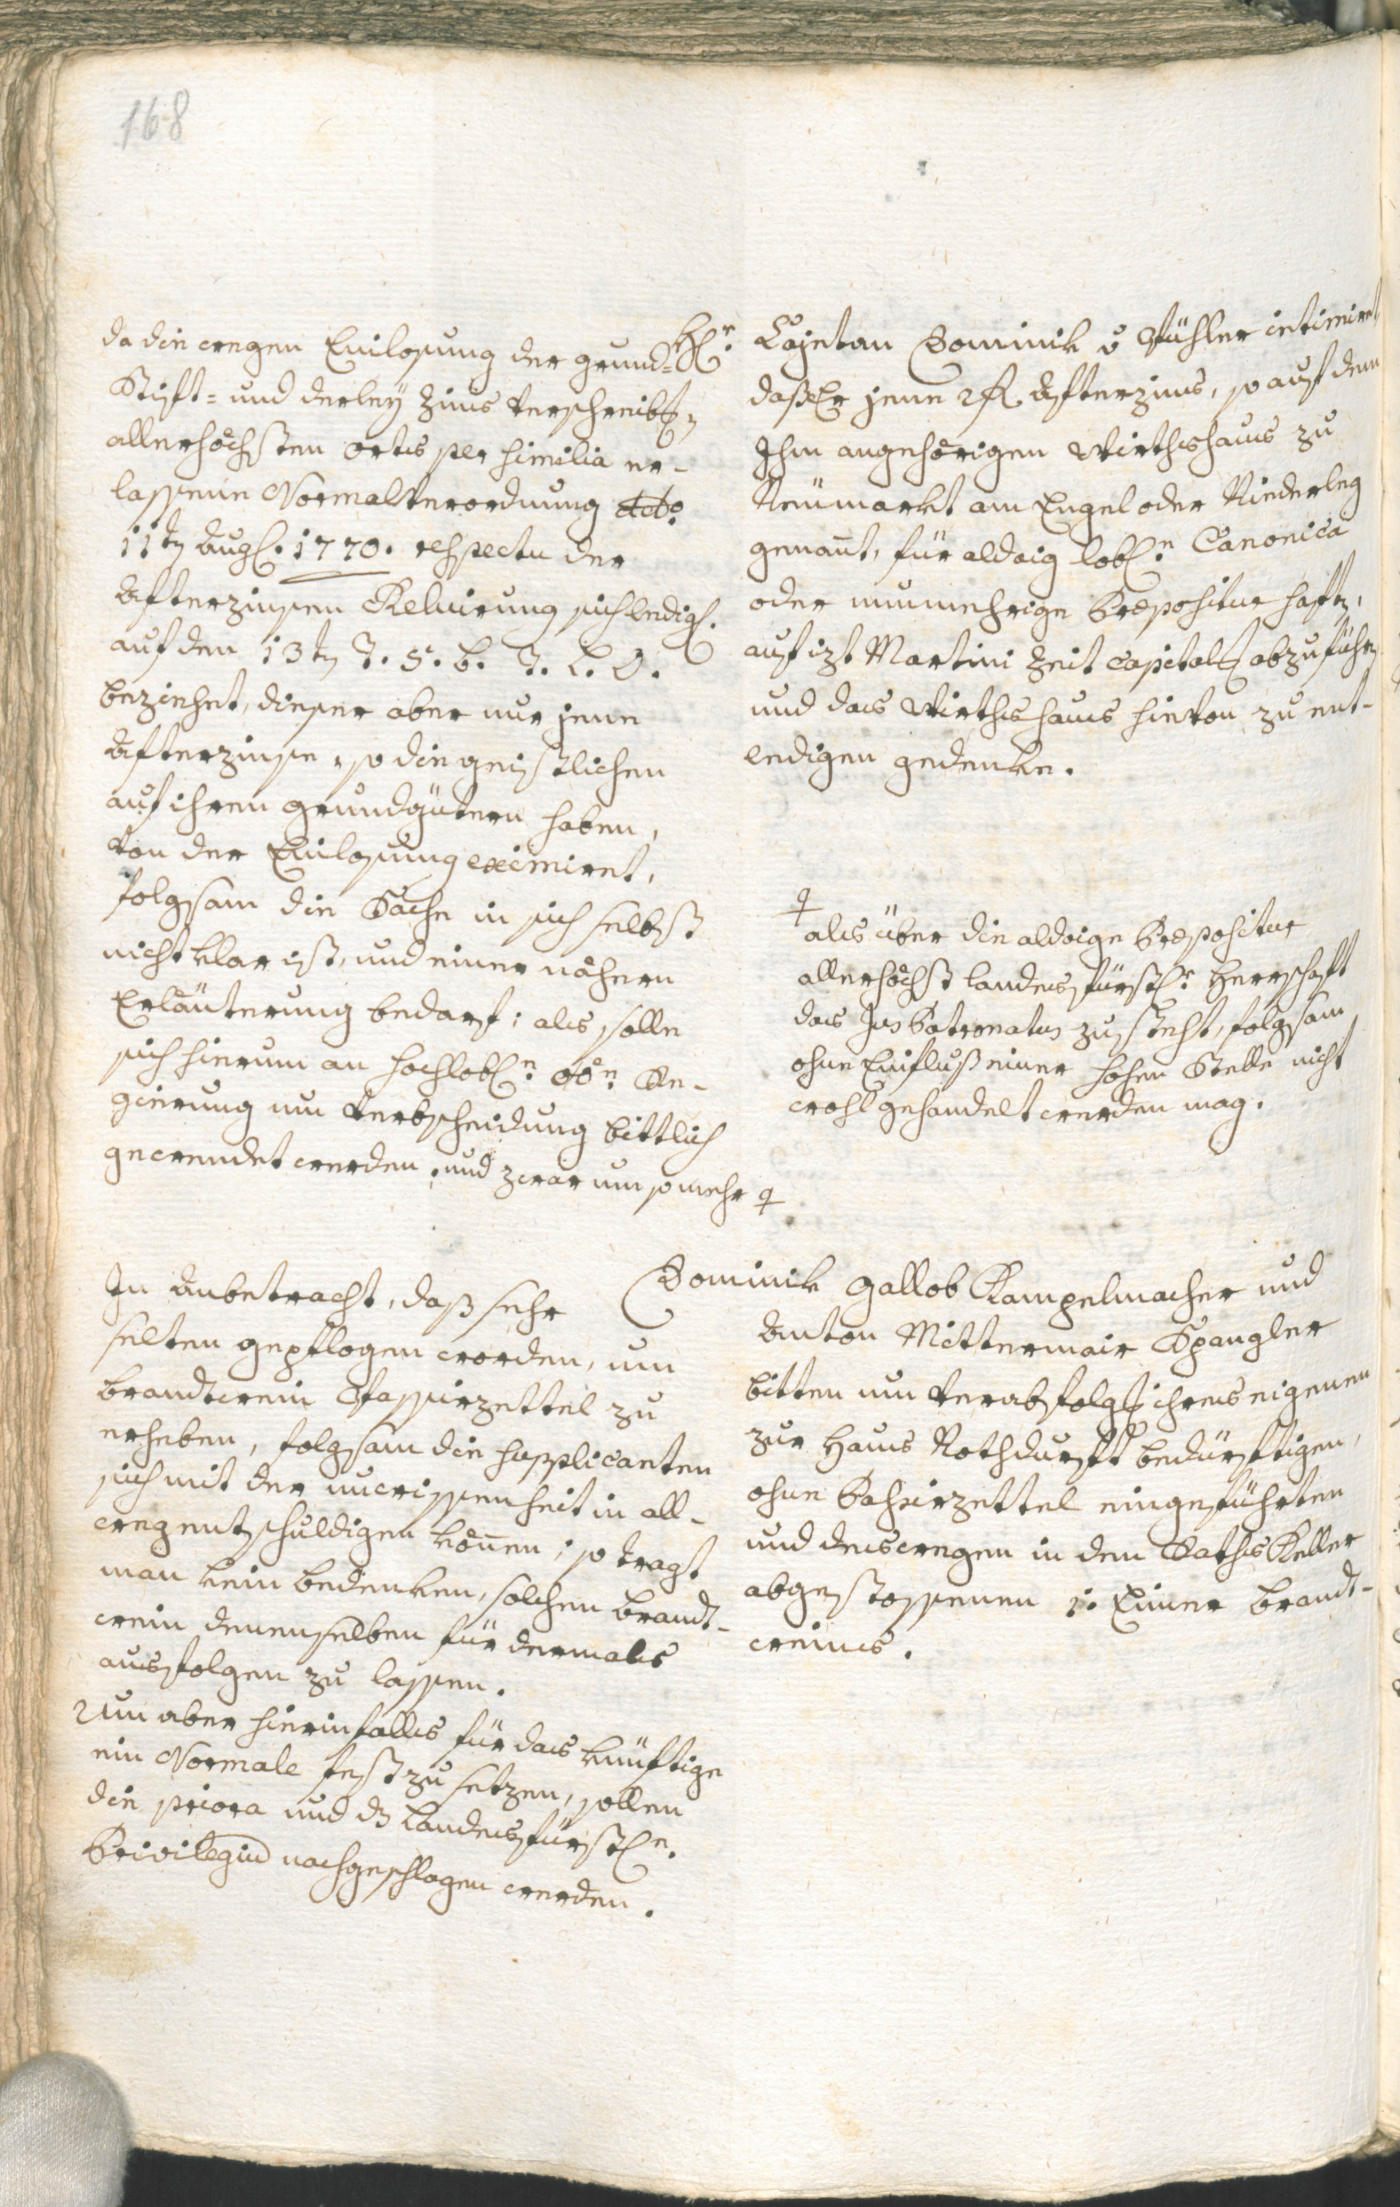 168
da die wegen Einlosung der grund=
Stifft= und derley Zins verschreibt,
allerhöchsten orts per similia er-
lassene Normalverordnung ddo
11tn Augl. 1770. respectu der
Afterzinsen Reluirung sich ledigl.
auf den 13tn T. S. L. T. L. O.
beziehet, dieser aber nur jene
Afterzinse, so die geistlichen
auf ihren grundgütern haben,
von der Einlosung eximiret,
folgsam die Sache in sich selbst
nicht klar ist, und einer nähern
Erläuterung bedarf; als solle
sich hierum an hochlobl.n oön Re-
gierung um verbscheidung bittlich
gewendet werden, und zwar um so mehr
Hr. Cajetan Dominik v Bühler intimiret
daß Er jene 2 fl. Afterzins, so auf dem
Ihm angehörigen Wirthshaus zu
Neumarkt am Engel oder Niederleg
genannt, für aldaig lobl.n Canonica
oder nunmehrige Prepositur hafte,
auf izt Martini Zeit Capitals abzuführn
und das Wirthshaus hievon zu ent-
ledigen gedenke.
als über die aldaige Prepositur
allerhöchst landesfürstlr. Herrschaft
das Jus Patronatus zusteht, folgsam
ohne Einfluß einer hohen Stelle nicht
wohl gehandelt werden mag.
In Anbetracht, daß sehr
selten gepflogen worden, um
brandtwein Passirzettel zu
erheben, folgsam die supplicanten
sich mit der unwissenheit in all-
weg entschuldigen können; so tragt
man kein bedenken, solchen brandt-
wein denenselben für dermals
ausfolgen zu lassen.
Um aber hierinfalls für das künftige
ein Normale fest zu setzen, sollen
die priora und dz landesfürstln.
Privilegium nachgeschlagen werden.
Dominik Gallob Kampelmacher und
Anton Mittermair Spangler
bitten um Verabfolgs ihres eigenen
zur Haus Nothdurft bedürftigen,
ohne Passirzettel eingeführten
und deswegen in dem Rathskeller
abgestossenen 1. Eimer brandt-
weines.